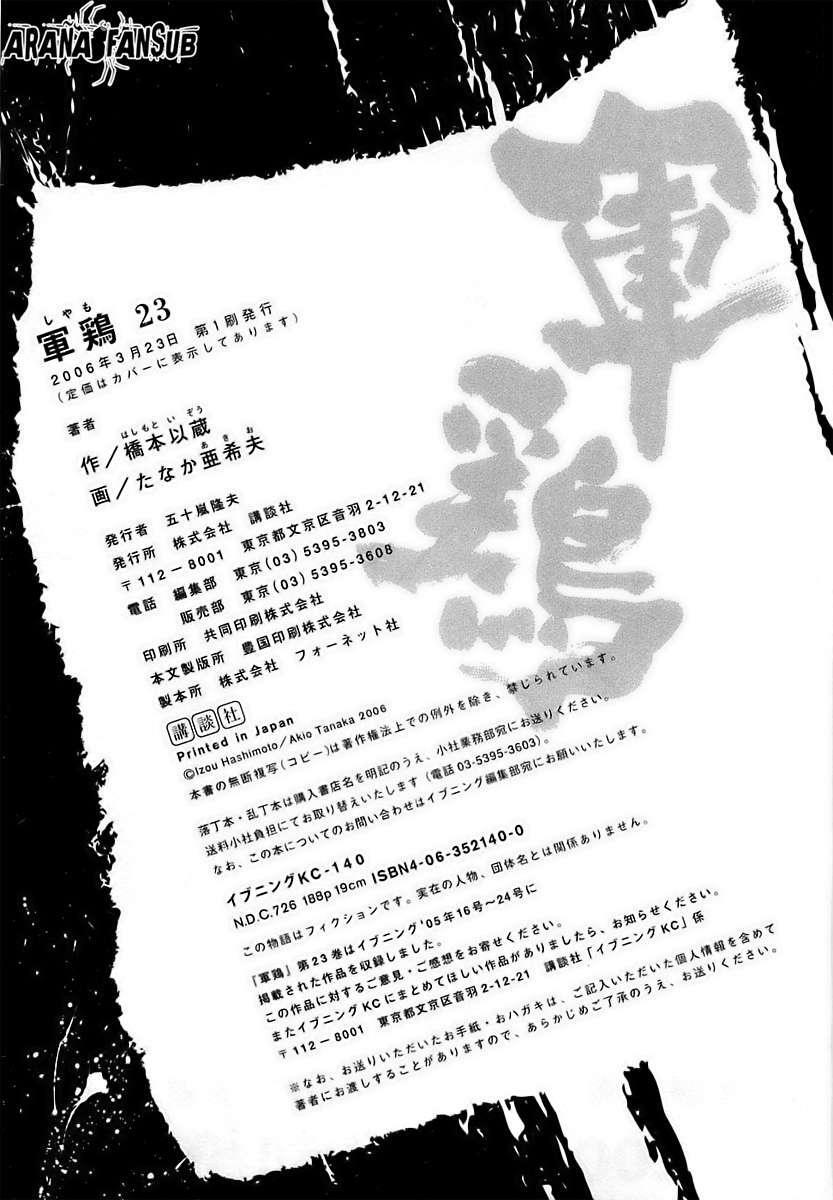 ARANA FANSUB
軍鶏
しゃも
軍鶏 23
2006年3月23日 第1刷発行
(定価はカバーに表示してあります)
著者
はしもと い ぞう
作/橋本以蔵
あ き お
画/たなか亜希夫
発行者 五十嵐隆夫
発行所 株式会社 講談社
〒112-8001 東京都文京区音羽2-12-21
電話 編集部 東京(03)5395-3803
販売部 東京(03)5395-3608
印刷所 共同印刷株式会社
本文製版所 豊国印刷株式会社
製本所 株式会社 フォーネット社
講談社
Printed in Japan
©Izou Hashimoto/Akio Tanaka 2006
本書の無断複写(コピー)は著作権法上での例外を除き、禁じられています。
落丁本・乱丁本は購入書店名を明記のうえ、小社業務部宛にお送りください。
送料小社負担にてお取り替えいたします(電話03-5395-3603)。
なお、この本についてのお問い合わせはイブニング編集部宛にお願いいたします。
イブニングKC-140
N.D.C.726 188p 19cm ISBN4-06-352140-0
この物語はフィクションです。実在の人物、団体名とは関係ありません。
『軍鶏』第23巻はイブニング'05年16号〜24号に
掲載された作品を収録しました。
この作品に対するご意見・ご感想をお寄せください。
またイブニングKCにまとめてほしい作品がありましたら、お知らせください。
〒112-8001 東京都文京区音羽2-12-21 講談社「イブニングKC」係
※なお、お送りいただいたお手紙・おハガキは、ご記入いただいた個人情報を含めて
著者にお渡しすることがありますので、あらかじめご了承のうえ、お送りください。